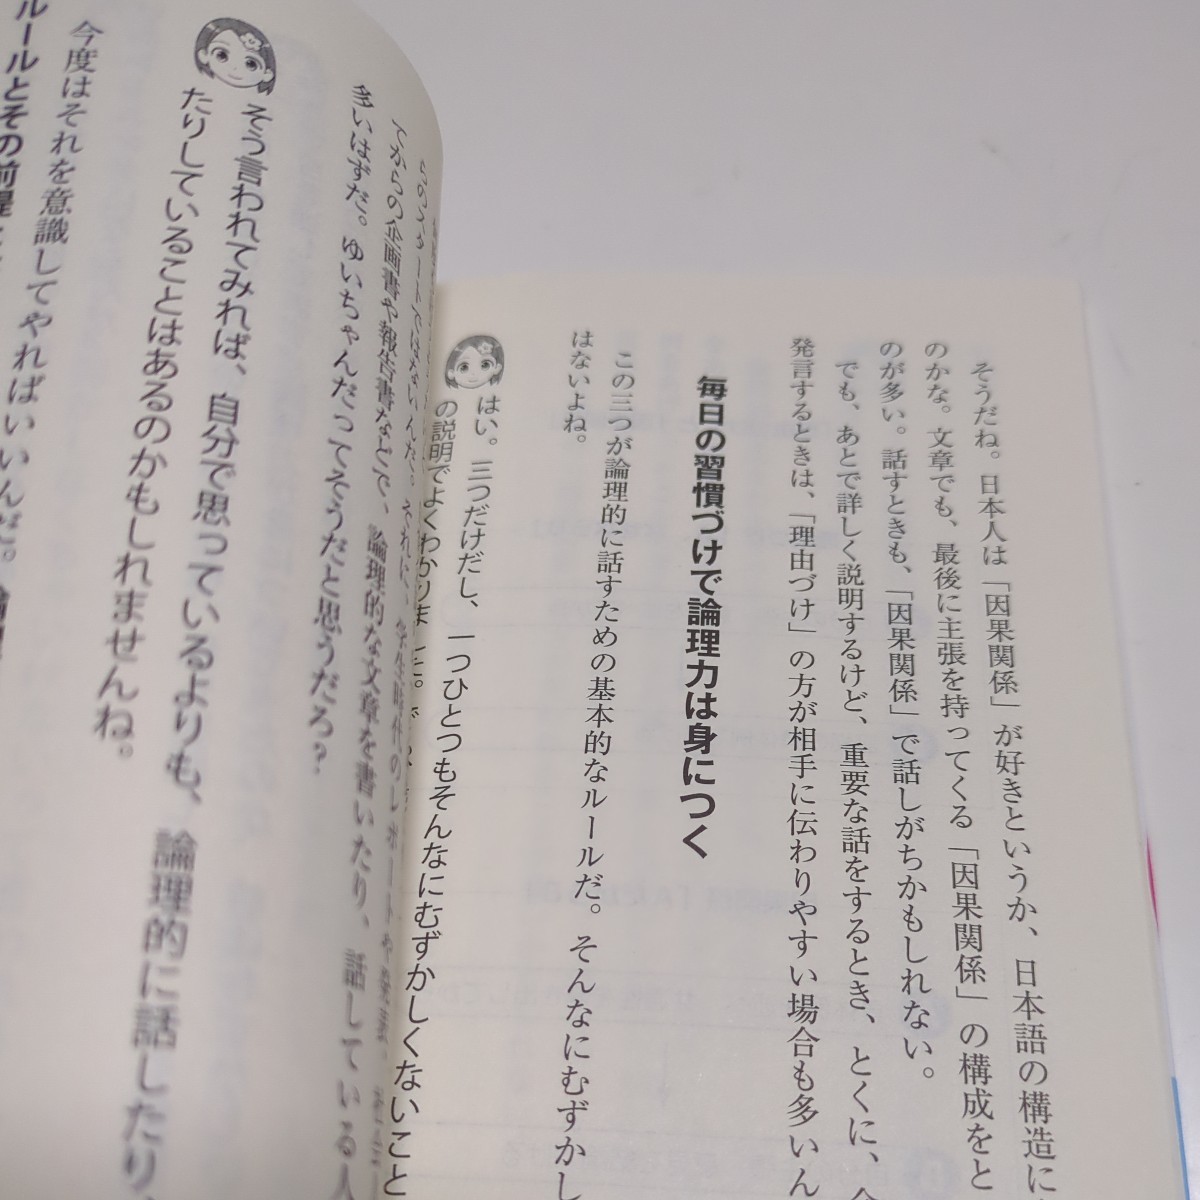 そうだね。日本人は「因果関係」が好きというか、日本語の構造に
のかな。文章でも、最後に主張を持ってくる「因果関係」の構成をと
のが多い。話すときも、「因果関係」で話しがちかもしれない。
でも、あとで詳しく説明するけど、重要な話をするとき、とくに、会
発言するときは、「理由づけ」の方が相手に伝わりやすい場合も多いん
毎日の習慣づけで論理力は身につく
この三つが論理的に話すための基本的なルールだ。そんなにむずかし
はないよね。
はい。三つだけだし、一つひとつもそんなにむずかしくないこと
の説明でよくわかりました。で
らのスタートではないんだ。それに、学生時代のレポートや
てからの企画書や報告書などで、論理的な文章を書いたり、話している人
多いはずだ。ゆいちゃんだってそうだと思うだろ？
そう言われてみれば、自分で思っているよりも、論理的に話したり、
たりしていることはあるのかもしれませんね。
今度はそれを意識してやればいいんだ。
ルールとその前提